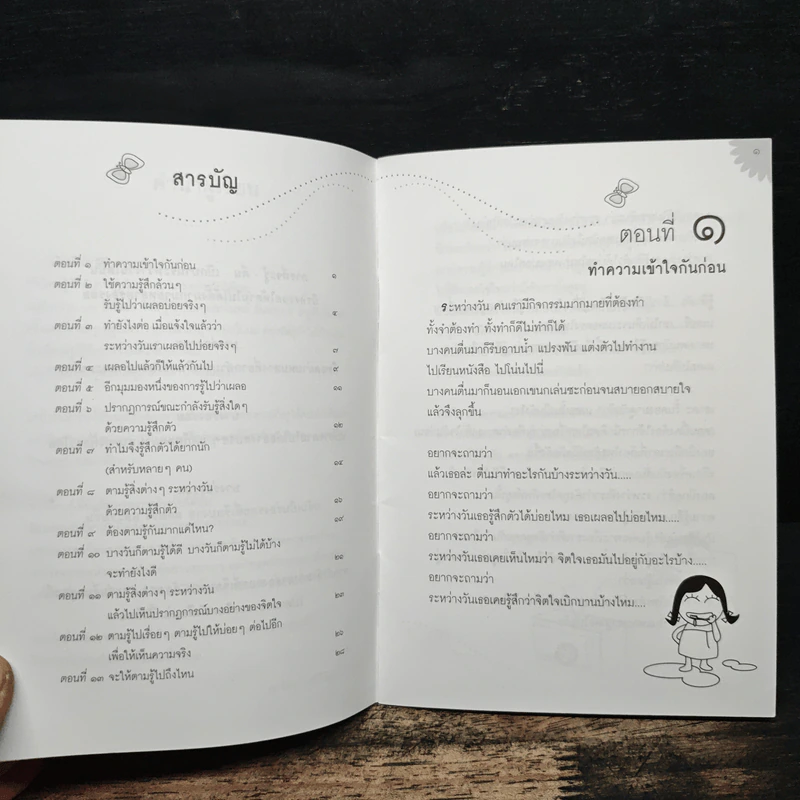 สารบัญ
ตอนที่ ๑ ทำความเข้าใจกันก่อน ๑
ตอนที่ ๒ ใช้ความรู้สึกล้วนๆ
รับรู้ไปว่าเผลอบ่อยจริงๆ ๔
ตอนที่ ๓ ทำยังไงต่อ เมื่อแจ้งใจแล้วว่า
ระหว่างวันเราเผลอไปบ่อยจริงๆ ๗
ตอนที่ ๔ เผลอไปแล้วก็ให้แล้วกันไป ๙
ตอนที่ ๕ อีกมุมมองหนึ่งของการรู้ไปว่าเผลอ ๑๑
ตอนที่ ๖ ปรากฏการณ์ขณะกำลังรับรู้สิ่งใดๆ
ด้วยความรู้สึกตัว ๑๒
ตอนที่ ๗ ทำไมจึงรู้สึกตัวได้ยากนัก
(สำหรับหลายๆ คน) ๑๔
ตอนที่ ๘ ตามรู้สิ่งต่างๆ ระหว่างวัน
ด้วยความรู้สึกตัว ๑๖
ตอนที่ ๙ ต้องตามรู้กันมากแค่ไหน? ๑๙
ตอนที่ ๑๐ บางวันก็ตามรู้ได้ดี บางวันก็ตามรู้ไม่ได้บ้าง
จะทำยังไงดี ๒๑
ตอนที่ ๑๑ ตามรู้สิ่งต่างๆ ระหว่างวัน
แล้วไปเห็นปรากฏการณ์บางอย่างของจิตใจ ๒๓
ตอนที่ ๑๒ ตามรู้ไปเรื่อยๆ ตามรู้ไปให้บ่อยๆ ต่อไปอีก
เพื่อให้เห็นความจริง ๒๖
ตอนที่ ๑๓ จะให้ตามรู้ไปถึงไหน ๒๘
๑
ตอนที่ ๑
ทำความเข้าใจกันก่อน
ระหว่างวัน คนเรามีกิจกรรมมากมายที่ต้องทำ
ทั้งจำต้องทำ ทั้งทำก็ดีไม่ทำก็ได้
บางคนตื่นมาก็รีบอาบน้ำ แปรงฟัน แต่งตัวไปทำงาน
ไปเรียนหนังสือ ไปโน่นไปนี่
บางคนตื่นมาก็นอนเอกเขนกเล่นซะก่อนจนสบายอกสบายใจ
แล้วจึงลุกขึ้น
อยากจะถามว่า
แล้วเธอล่ะ ตื่นมาทำอะไรกันบ้างระหว่างวัน.....
อยากจะถามว่า
ระหว่างวันเธอรู้สึกตัวได้บ่อยไหม เธอเผลอไปบ่อยไหม.....
อยากจะถามว่า
ระหว่างวันเธอเคยเห็นไหมว่า จิตใจเธอมันไปอยู่กับอะไรบ้าง.....
อยากจะถามว่า
ระหว่างวันเธอเคยรู้สึกว่าจิตใจเบิกบานบ้างไหม....